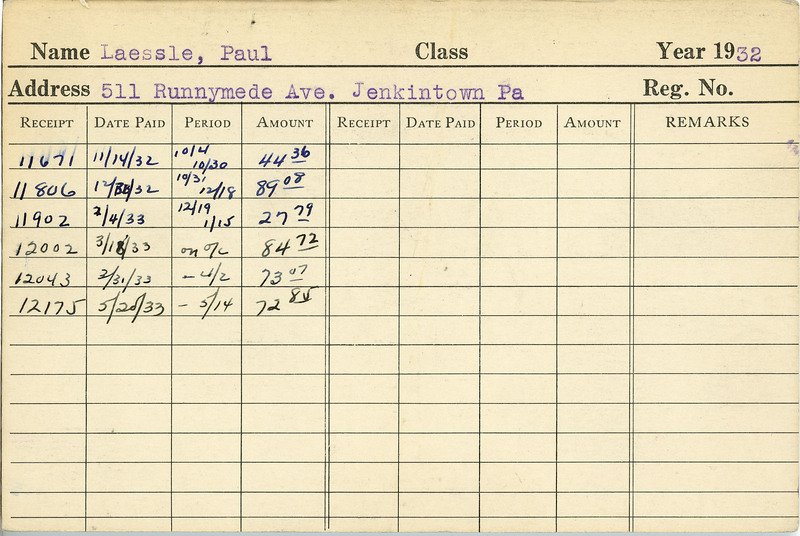 Name Laessle, Paul Class Year 1932
Address 511 Runnymede Ave. Jenkintown Pa Reg. No.
RECEIPT DATE PAID PERIOD AMOUNT RECEIPT DATE PAID PERIOD AMOUNT REMARKS
11671 11/14/32 10/4 10/30 44 36
11806 12/ /32 10/31 12/18 89 08
11902 2/4/33 12/19 1/15 27 79
12002 3/18/33 on a/c 84 72
12043 3/31/33 - 4/2 73 07
12175 5/20/33 - 5/14 72 85